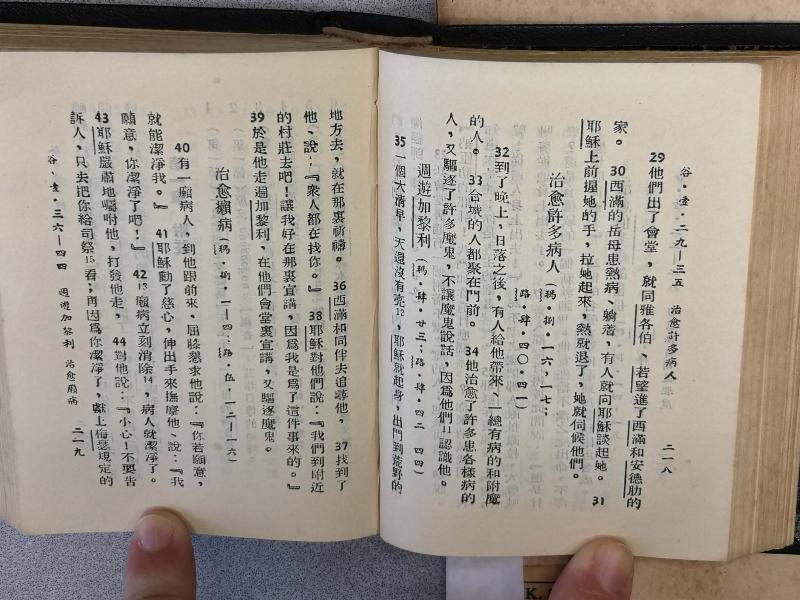 谷．壹．二九－三五　治愈許多病人　二一八
29他們出了會堂，就同雅各伯、若望進了西滿和安德肋的
家。30西滿的岳母患熱病、躺着，有人就向耶穌談起她。31
耶穌上前握她的手，拉她起來，熱就退了，她就伺候他們。
治愈許多病人（瑪．捌．一六，一七；
路．肆．四〇．四一）
32到了晚上，日落之後，有人給他帶來、一總有病的和附魔
的人。33合城的人都聚在門前。34他治愈了許多患各樣病的
人，又驅逐了許多魔鬼，不讓魔鬼說話，因爲他們11認識他。
週遊加黎利（瑪．肆．廿三；路．肆．四二　四四）
35一個大清早，天還沒有亮12，耶穌就起身，出門到荒野的
地方去，就在那裏祈禱。36西滿和同伴夫追尋他，37找到了
他、說：『衆人都在找你。』38耶穌對他們說：『我們到附近
的村莊去吧！讓我好在那裏宣講，因爲我是爲了這件事來的。』
39於是他走遍加黎利，在他們會堂裏宣講，又驅逐魔鬼。
治愈癩病（瑪．捌．一－四；路．伍．一二－一六）
40有一癩病人，到他跟前來，屈膝懇求他說：『你若願意，
就能潔淨我。』41耶穌動了慈心，伸出手來撫摩他、說：『我
願意，你潔淨了吧！』42癩病立刻消除14，病人就潔淨了。
43耶穌嚴肅地囑咐他，打發他走，44對他說：『小心！不要告
訴人，只去把你給司祭15看；再因爲你潔淨了，獻上梅瑟規定的
谷．壹．三六－四四　週遊加黎利　治愈癩病　二一九
K.